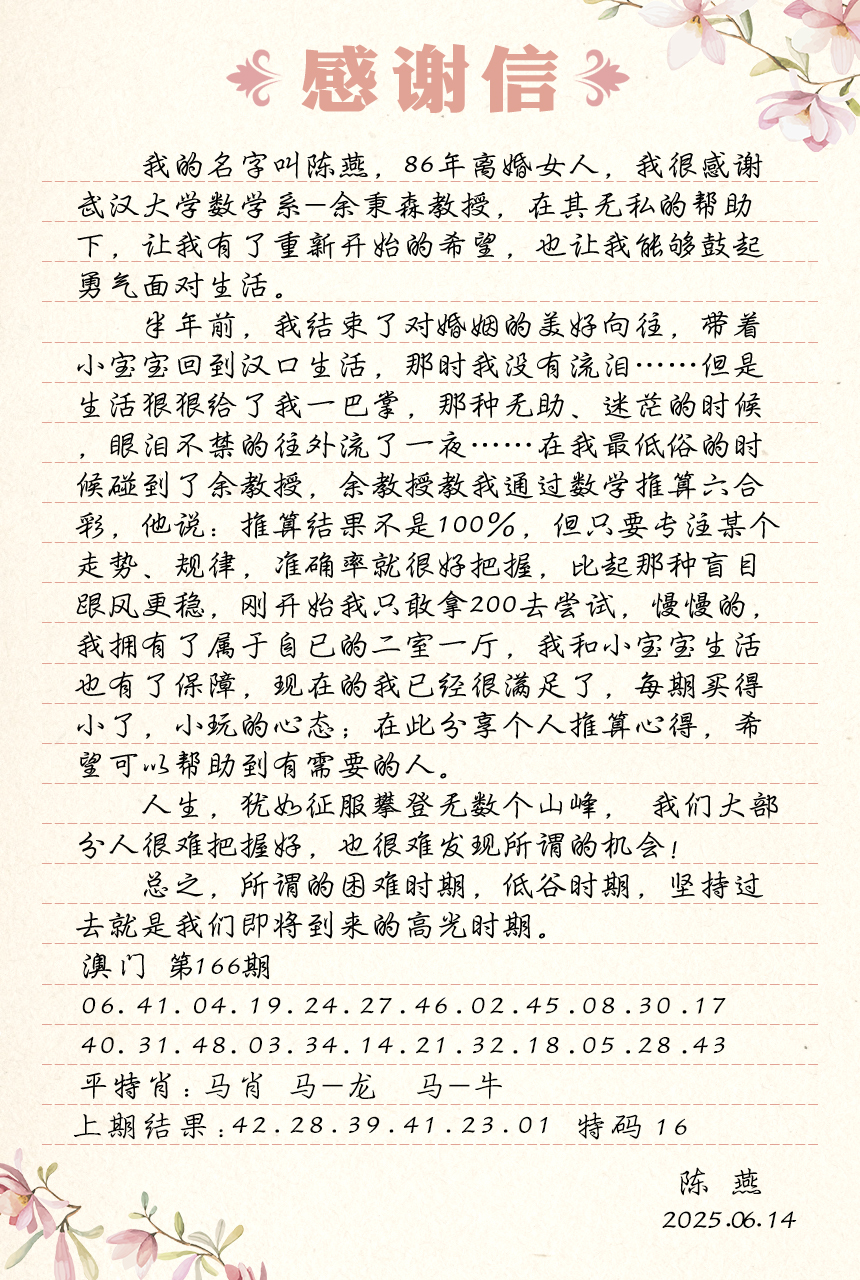 感谢信
我的名字叫陈燕，86年离婚女人，我很感谢
武汉大学数学系—余秉森教授，在其无私的帮助
下，让我有了重新开始的希望，也让我能够鼓起
勇气面对生活。
半年前，我结束了对婚姻的美好向往，带着
小宝宝回到汉口生活，那时我没有流泪……但是
生活狠狠给了我一巴掌，那种无助、迷茫的时候
，眼泪不禁的往外流了一夜……在我最低俗的时
候碰到了余教授，余教授教我通过数学推算六合
彩，他说：推算结果不是100%，但只要专注某个
走势、规律，准确率就很好把握，比起那种盲目
跟风更稳，刚开始我只敢拿200去尝试，慢慢的，
我拥有了属于自己的二室一厅，我和小宝宝生活
也有了保障，现在的我已经很满足了，每期买得
小了，小玩的心态；在此分享个人推算心得，希
望可以帮助到有需要的人。
人生，犹如征服攀登无数个山峰， 我们大部
分人很难把握好，也很难发现所谓的机会！
总之，所谓的困难时期，低谷时期，坚持过
去就是我们即将到来的高光时期。
澳门 第166期
06.41.04.19.24.27.46.02.45.08.30.17
40.31.48.03.34.14.21.32.18.05.28.43
平特肖：马肖 马—龙 马—牛
上期结果：42.28.39.41.23.01 特码 16
陈 燕
2025.06.14